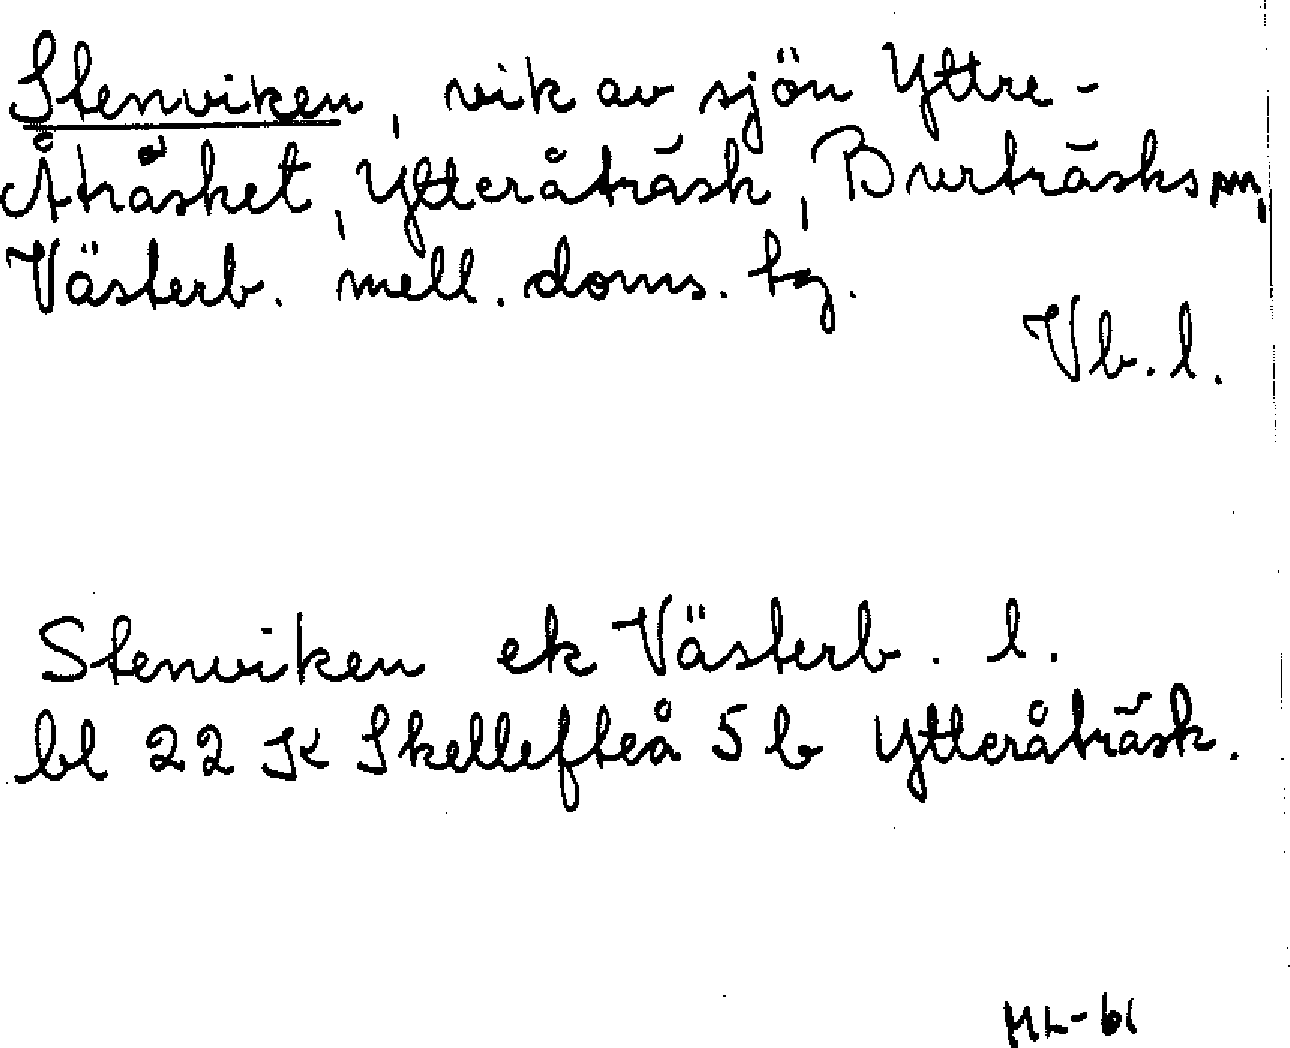 Stenviken, vik av sjön Yttre-
Åträsket, Ytteråträsk, Burträsks sn,
Västerb. mell. doms. tg.
Vb. l.
Stenviken ek Västerb. l.
bl 22 K Skellefteå 5 b Ytteråträsk.
HL-61